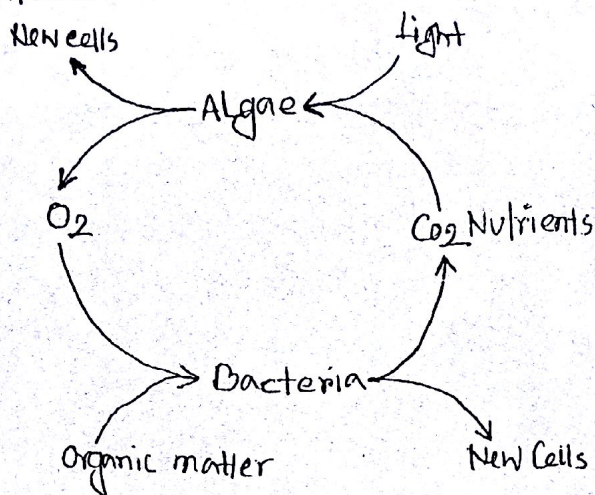 New cells
Light
ALgae
O2
Co2 Nutrients
Bacteria
Organic matter
New Cells